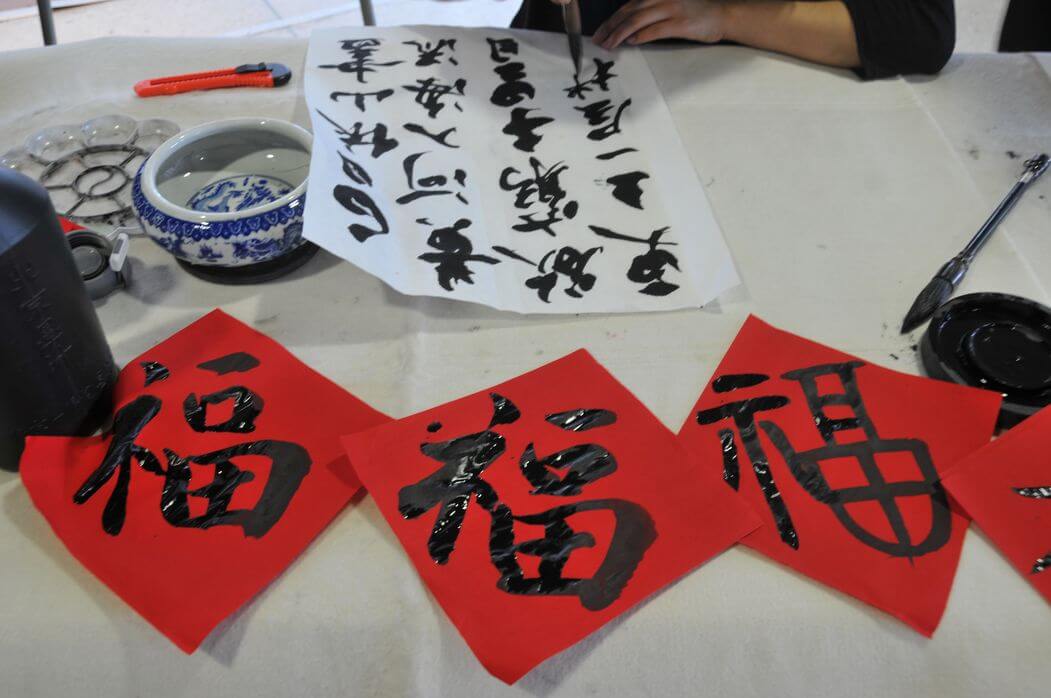 白日依山盡
黄河入海流
欲窮千里目
更上一層樓
福
福
福